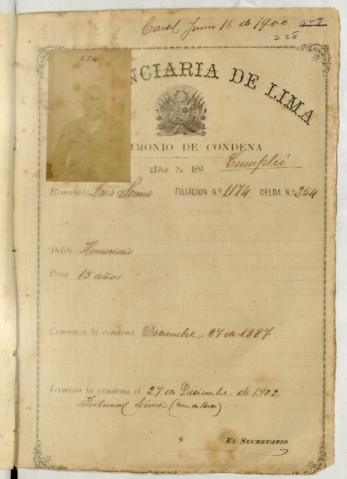 Junio 15 de 1900
228
254
NCIARIA DE LIMA
IMONIO DE CONDENA
Año de 189
Cumplió
Rematado Luis FILIACION N.º 1174 CELDA N.º 254
Delito Homicidio
Pena 15 años
Comienza la condena Diciembre 27 de 1887
Termina la condena el 27 de Diciembre de 1902
Tribunal Lima
EL SECRETARIO